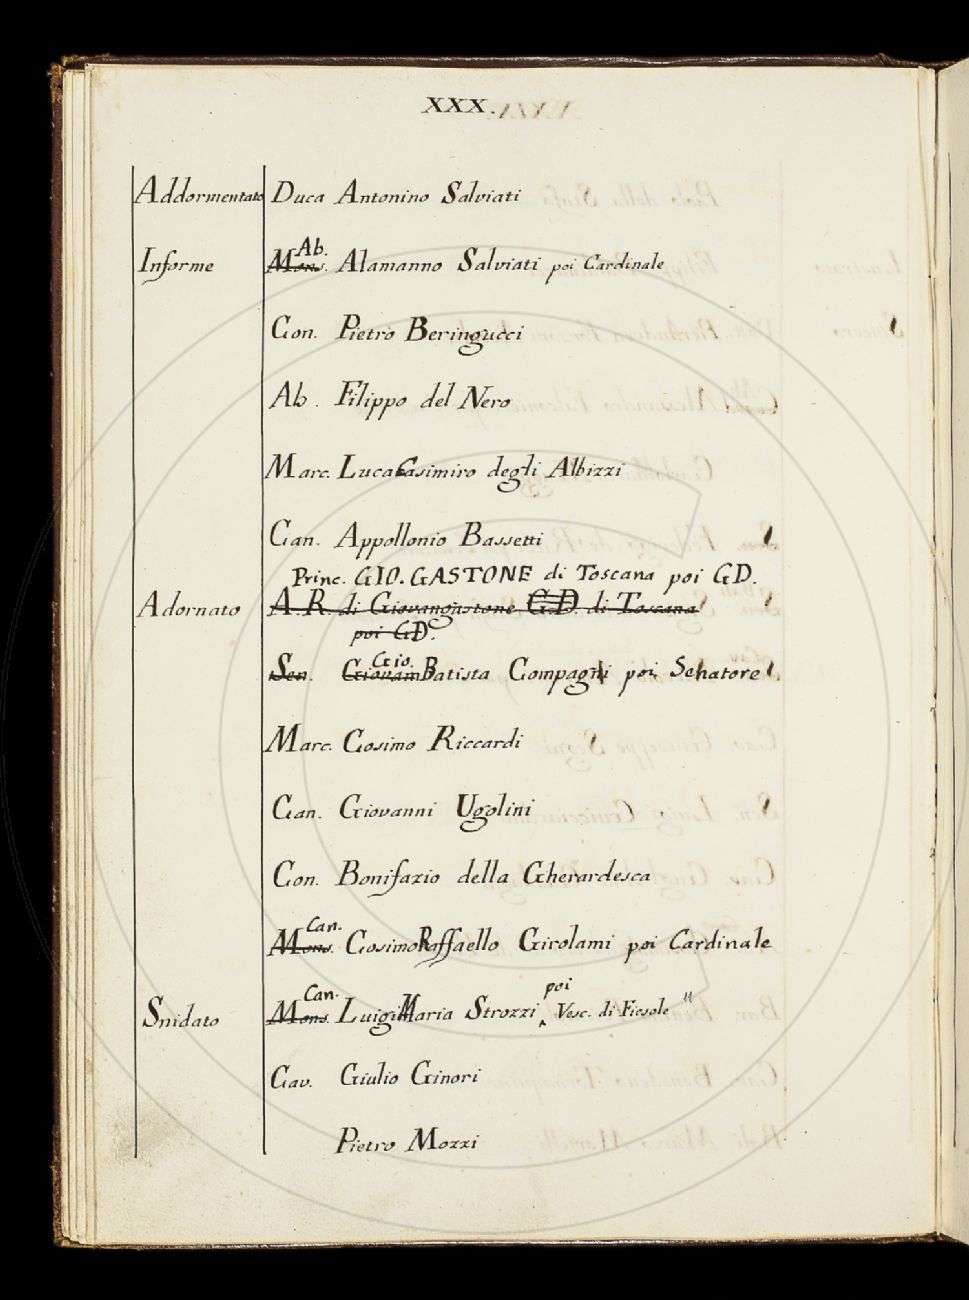 XXX.
Addormentato Duca Antonino Salviati
Ab.
Informe Mons. Alamanno Salviati poi Cardinale
Con. Pietro Beringucci
Ab. Filippo del Nero
Marc. Luca Casimiro degli Albizzi
Can. Appollonio Bassetti
Princ. GIO. GASTONE di Toscana poi GD.
Adornato A.R. di Giovangastone G.D. di Toscana
poi GD.
Gio.
Sen. GiovamBatista Compagni poi Senatore
Marc. Cosimo Riccardi
Can. Giovanni Ugolini
Con. Bonifazio della Gherardesca
Can.
Mons. Cosimo Raffaello Girolami poi Cardinale
Can. poi
Snidato Mons. Luigi Maria Strozzi Vesc. di Fiesole
Cav. Giulio Ginori
Pietro Mozzi